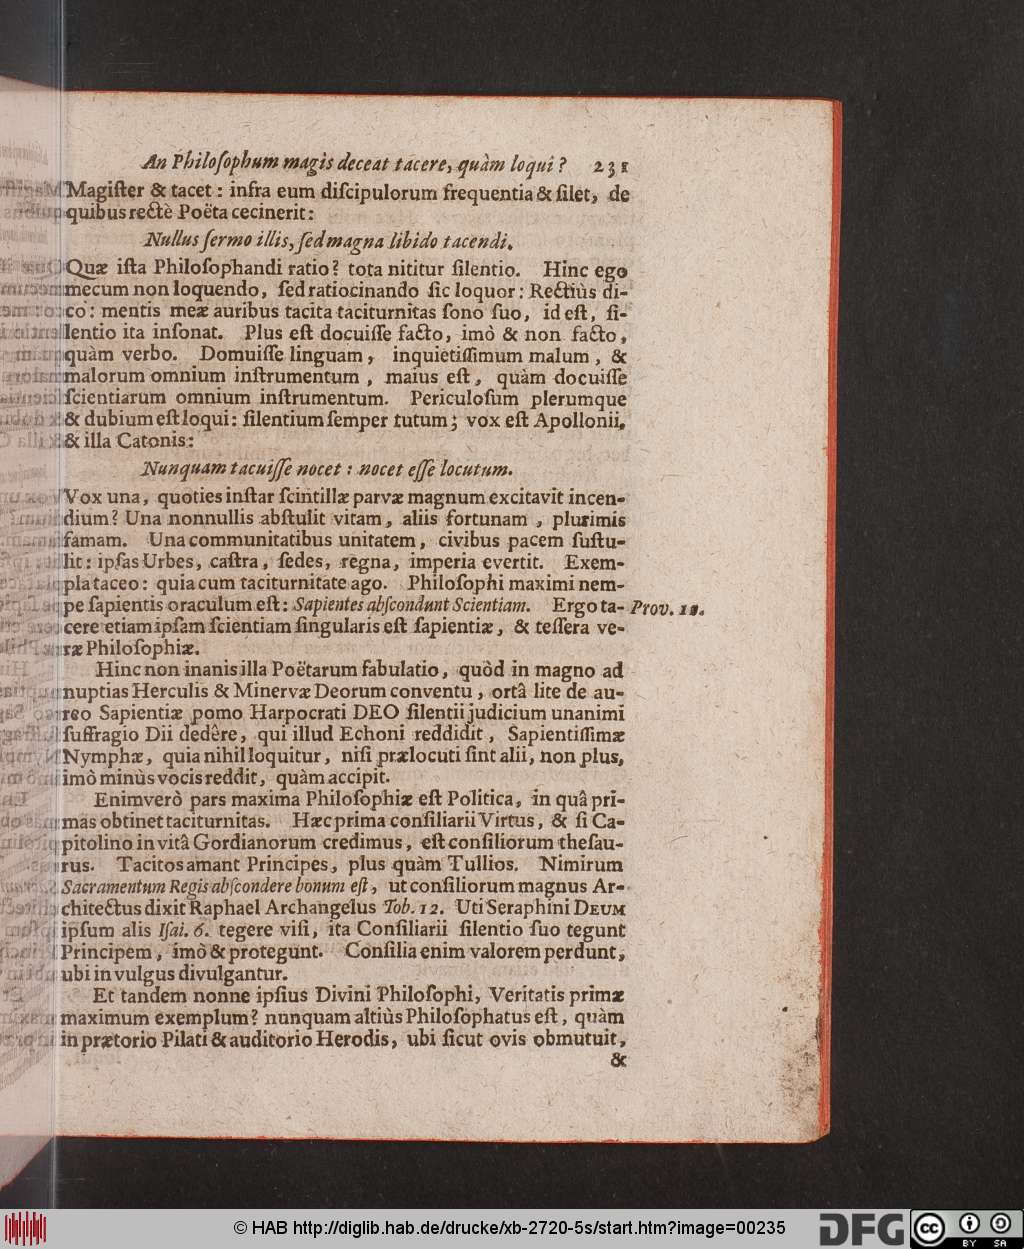 An Philoſophum magis deceat tacere, quàm loqui? 231
Magiſter & tacet: infra eum diſcipulorum frequentia & ſilet, de
quibus rectè Poëta cecinerit:
Nullus ſermo illis, ſed magna libido tacendi.
Quæ iſta Philoſophandi ratio? tota nititur ſilentio. Hinc ego
mecum non loquendo, ſed ratiocinando ſic loquor: Rectiùs di-
co: mentis meæ auribus tacita taciturnitas ſono ſuo, id eſt, ſi-
lentio ita inſonat. Plus eſt docuiſſe facto, imò & non facto,
quàm verbo. Domuiſſe linguam, inquietiſſimum malum, &
malorum omnium inſtrumentum, maius eſt, quàm docuiſſe
ſcientiarum omnium inſtrumentum. Periculoſum plerumque
& dubium eſt loqui: ſilentium ſemper tutum; vox eſt Apollonii,
& illa Catonis:
Nunquam tacuiſſe nocet: nocet eſſe locutum.
Vox una, quoties inſtar ſcintillæ parvæ magnum excitavit incen-
dium? Una nonnullis abſtulit vitam, aliis fortunam, plurimis
famam. Una communitatibus unitatem, civibus pacem ſuſtu-
lit: ipſas Urbes, caſtra, ſedes, regna, imperia evertit. Exem-
pla taceo: quia cum taciturnitate ago. Philoſophi maximi nem-
pe ſapientis oraculum eſt: Sapientes abſcondunt Scientiam. Ergo ta- Prov. 10.
cere etiam ipſam ſcientiam ſingularis eſt ſapientiæ, & teſſera ve-
ræ Philoſophiæ.
Hinc non inanis illa Poëtarum fabulatio, quòd in magno ad
nuptias Herculis & Minervæ Deorum conventu, ortâ lite de au-
reo Sapientiæ pomo Harpocrati DEO ſilentii judicium unanimi
ſuffragio Dii dedêre, qui illud Echoni reddidit, Sapientiſſimæ
Nymphæ, quia nihil loquitur, niſi prælocuti ſint alii, non plus,
imò minùs vocis reddit, quàm accipit.
Enimverò pars maxima Philoſophiæ eſt Politica, in quâ pri-
mas obtinet taciturnitas. Hæc prima conſiliarii Virtus, & ſi Ca-
pitolino in vitâ Gordianorum credimus, eſt conſiliorum theſau-
rus. Tacitos amant Principes, plus quàm Tullios. Nimirum
Sacramentum Regis abſcondere bonum eſt, ut conſiliorum magnus Ar-
chitectus dixit Raphael Archangelus Tob. 12. Uti Seraphini DEUM
ipſum alis Iſai. 6. tegere viſi, ita Conſiliarii ſilentio ſuo tegunt
Principem, imò & protegunt. Conſilia enim valorem perdunt,
ubi in vulgus divulgantur.
Et tandem nonne ipſius Divini Philoſophi, Veritatis primæ
maximum exemplum? nunquam altiùs Philoſophatus eſt, quàm
in prætorio Pilati & auditorio Herodis, ubi ſicut ovis obmutuit,
&
© HAB http://diglib.hab.de/drucke/xb-2720-5s/start.htm?image=00235
DFG
cc BY SA